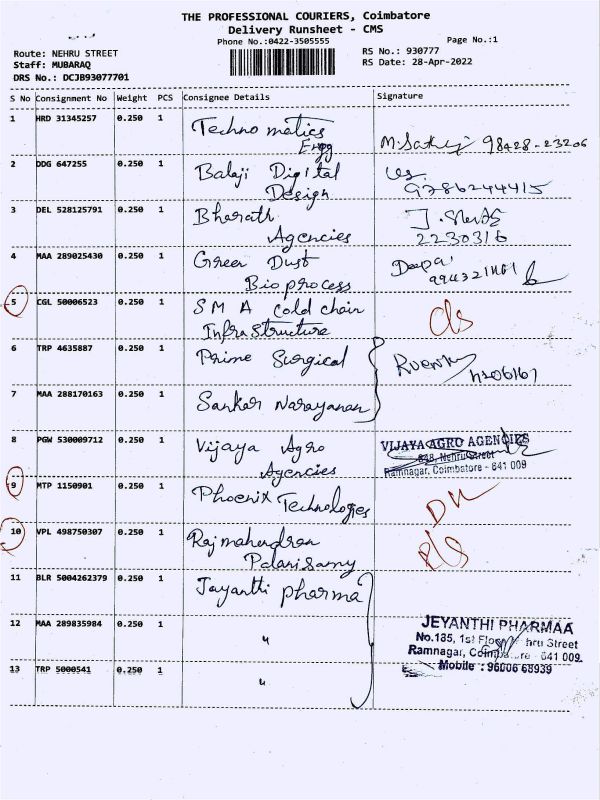 THE PROFESSIONAL COURIERS, Coimbatore
Delivery Runsheet - CMS
Phone No.:0422-3505555
Page No.:1
Route: NEHRU STREET
Staff: MUBARAQ
DRS No.: DCJB93077701
RS No.: 930777
RS Date: 28-Apr-2022
S No Consignment No Weight PCS Consignee Details Signature
1 HRD 31345257 0.250 1 Techno matics
Engg
98428-23206
2 DDG 647255 0.250 1 Balaji Digital
Design
9786244415
3 DEL 528125791 0.250 1 Bharath
Agencies
2230316
4 MAA 289025430 0.250 1 Green Dust
Bio process
Deepa
5 CGL 50006523 0.250 1 S M A Cold chain
Infrastructure
6 TRP 4635887 0.250 1 Prime Surgical
7 MAA 288170163 0.250 1 Sankar Narayanan
8 PGW 530009712 0.250 1 Vijaya Agro
Agencies
VIJAYA AGRO AGENCIES
Nehru Street
Ramnagar, Coimbatore - 641 009
9 MTP 1150901 0.250 1 Phoenix Technologies
10 VPL 498750307 0.250 1 Raj mahendran
Palanisamy
11 BLR 5004262379 0.250 1 Jayanthi pharma
12 MAA 289835984 0.250 1 "
13 TRP 5000541 0.250 1 "
JEYANTHI PHARMAA
No.185, 1st Floor, Nehru Street
Ramnagar, Coimbatore - 641 009.
Mobile : 96006 68939